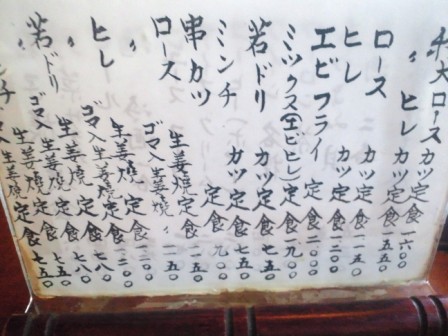 大ロースカツ定食一六〇〇
〃ヒレカツ定食一五五〇
ロースカツ定食一一五〇
ヒレカツ定食一二〇〇
エビフライ定食一二〇〇
ミックス(エビヒレ)定食一九〇〇
若ドリカツ定食七五〇
ミンチカツ定食七五〇
串カツ定食九〇〇
ロース生姜焼定食一一五〇
ゴマ入生姜焼〃
ヒレ生姜焼定食
ゴマ入生姜焼定食
若ドリ生姜焼定食
ゴマ入生姜焼定食
ンチ